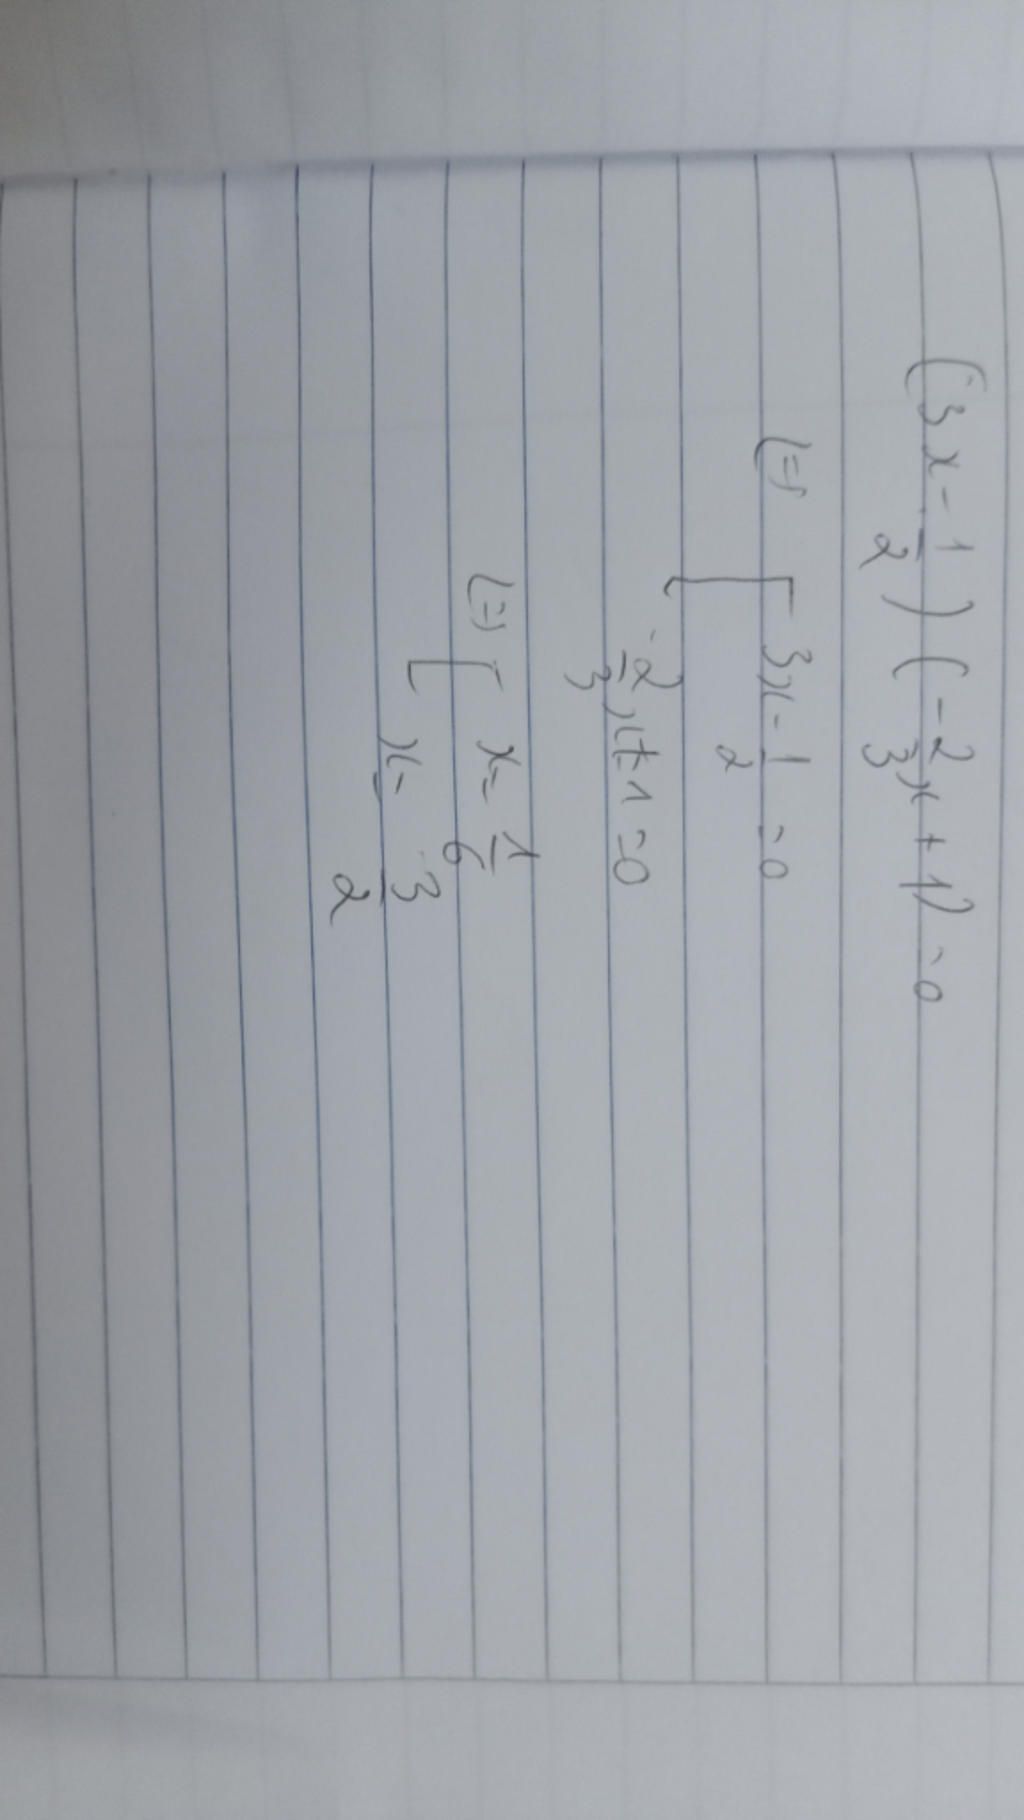 (3x - 1/2)(-2/3x + 1) = 0
<=> [ 3x - 1/2 = 0
-2/3x + 1 = 0
<=> [ x = 1/6
x = 3/2